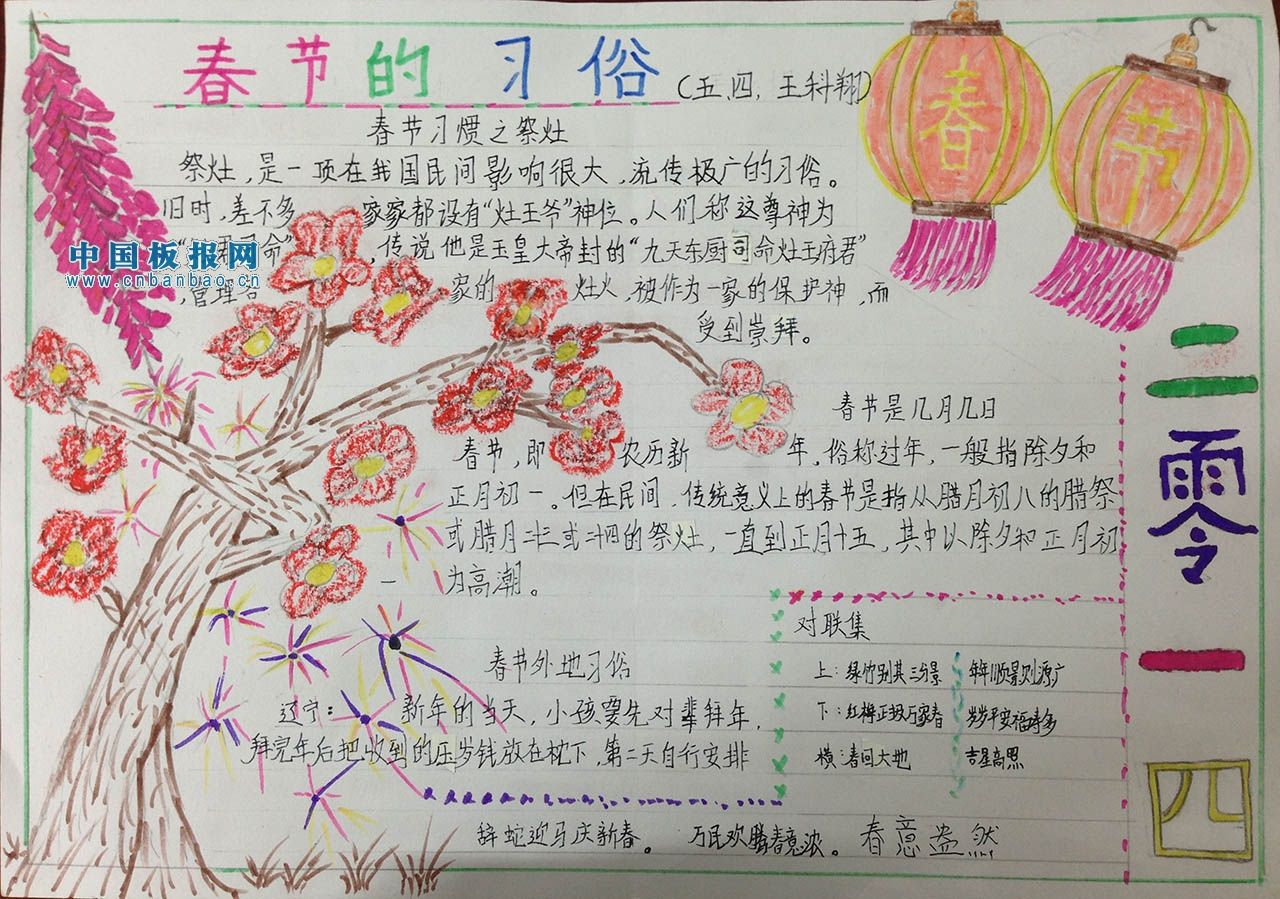 春节的习俗(五、四,王科翔)
春节习惯之祭灶
祭灶,是一项在我国民间影响很大,流传极广的习俗。
旧时,差不多家家都设有“灶王爷”神位。人们称这尊神为
命”,传说他是玉皇大帝封的“九天东厨司命灶王府君”
,管理各家的灶火,被作为一家的保护神,而
受到崇拜。
中国板报网
www.cnbanbao.cn
春节
春节是几月几日
春节,即农历新年,俗称过年,一般指除夕和
正月初一。但在民间,传统意义上的春节是指从腊月初八的腊祭
或腊月二十三或二十四的祭灶,一直到正月十五,其中以除夕和正月初
一为高潮。
春节外地习俗
辽宁:新年的当天,小孩要先对辈拜年,
拜完年后把收到的压岁钱放在枕下,第二天自行安排
对联集
上:绿竹别其三分景
下:红梅正报万家春
横:春回大地
年年顺景则源广
岁岁平安福寿多
吉星高照
辞蛇迎马庆新春。万民欢腾春意浓。春意盎然
二零一四